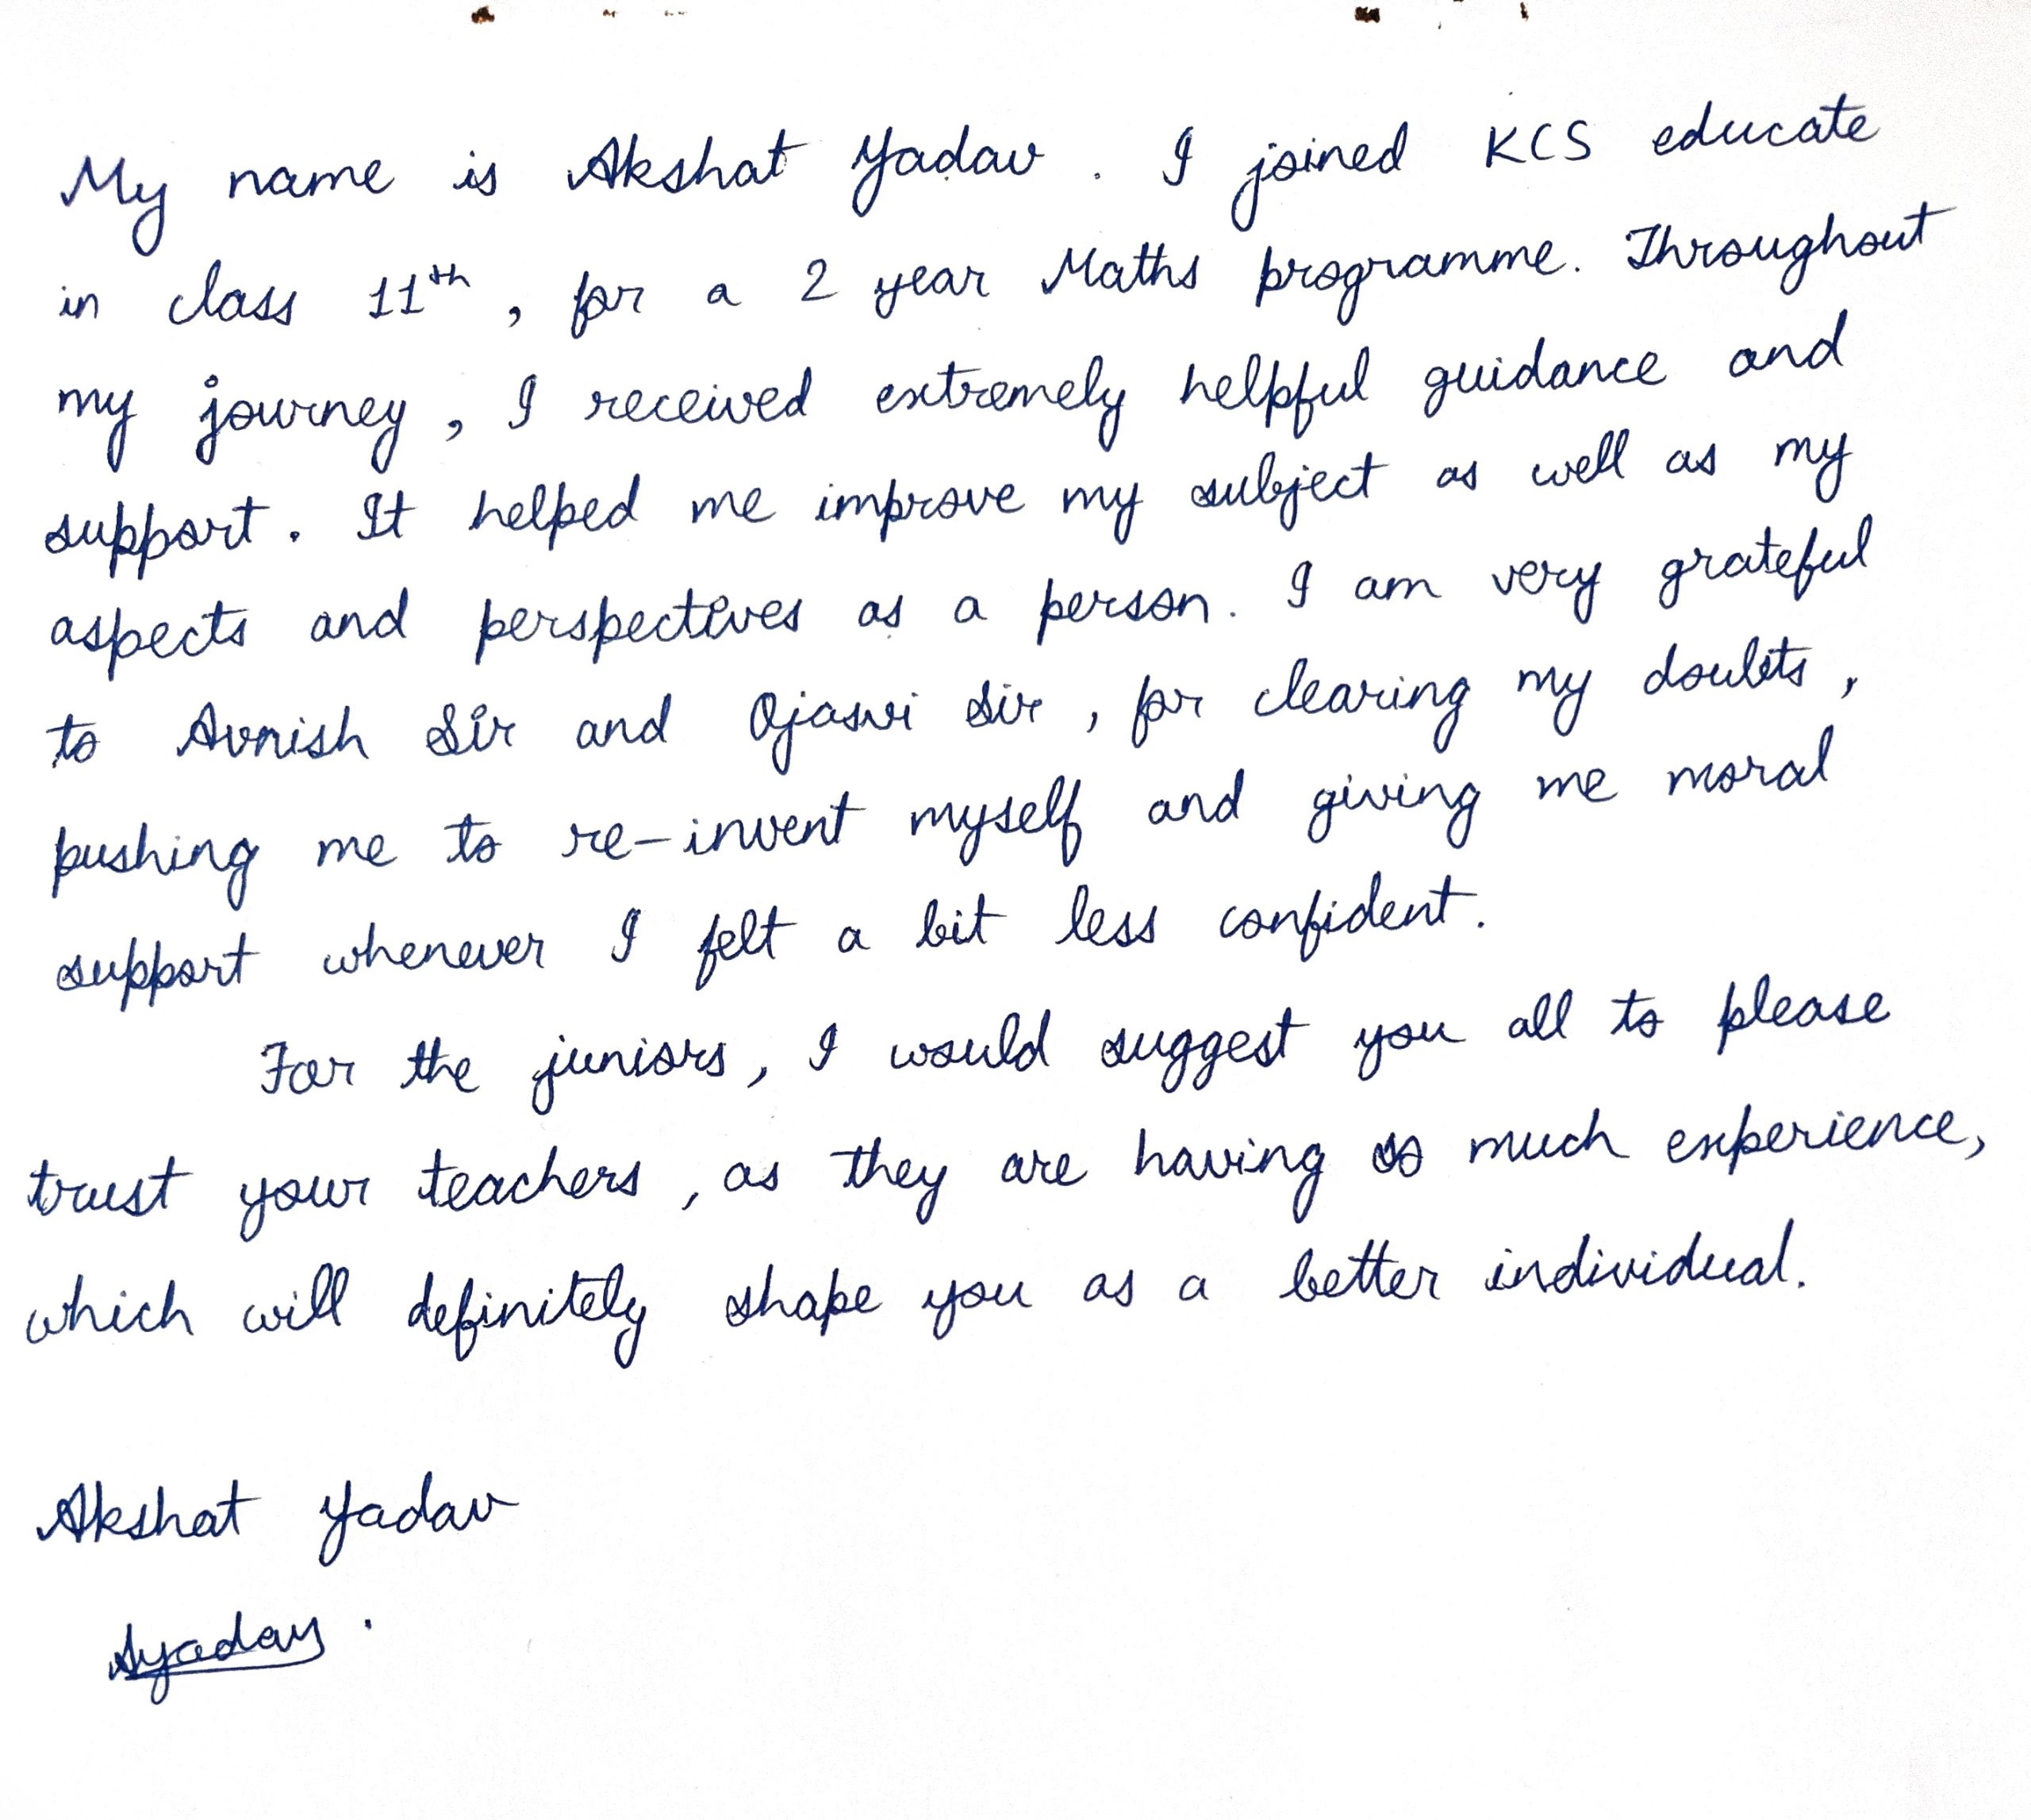 My name is Akshat Yadav. I joined KCS educate
in class 11th, for a 2 year Maths programme. Throughout
my journey, I received extremely helpful guidance and
support. It helped me improve my subject as well as my
aspects and perspectives as a person. I am very grateful
to Avnish Sir and Ojaswi Sir, for clearing my doubts,
pushing me to re-invent myself and giving me moral
support whenever I felt a bit less confident.
For the juniors, I would suggest you all to please
trust your teachers, as they are having so much experience,
which will definitely shape you as a better individual.
Akshat Yadav
Ayadav.